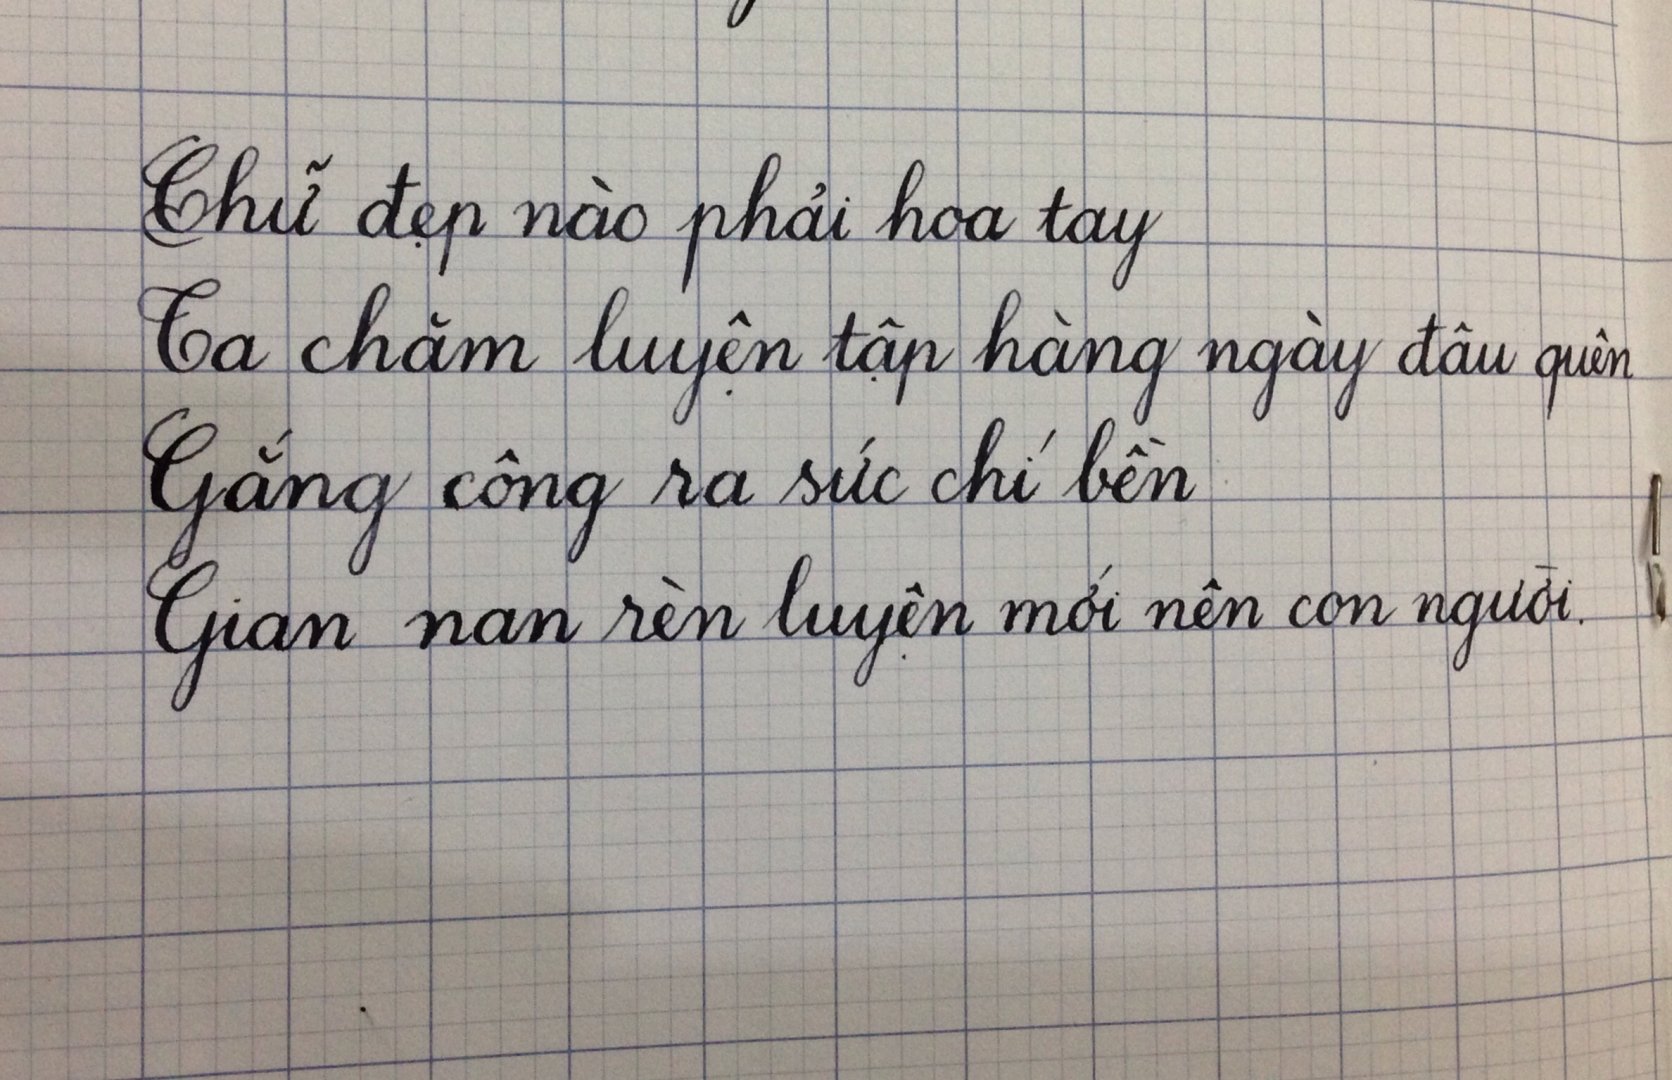 Chữ đẹp nào phải hoa tay
Ta chăm luyện tập hàng ngày đâu quên
Gắng công ra sức chí bền
Gian nan rèn luyện mới nên con người.